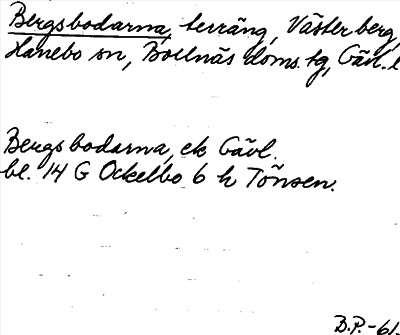 Bergsbodarna, terräng, Västerberg,
Hanebo sn, Bollnäs doms.tg, Gävl. l
Bergsbodarna, ek Gävl.
bl. 14 G Ockelbo 6 h Tönsen.
B.P.-61.